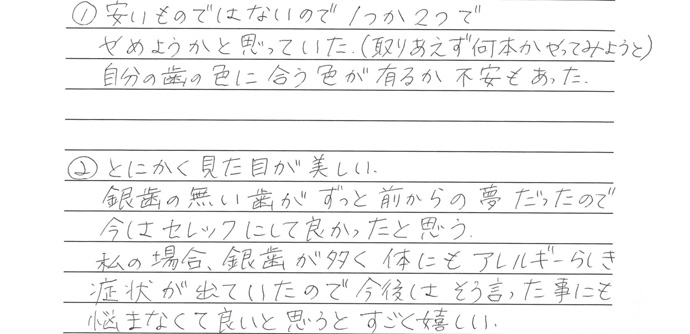 ① 安いものではないので 1つか2つで
やめようかと思っていた.(取りあえず何本かやってみようと)
自分の歯の色に合う色が有るか不安もあった.
② とにかく見た目が美しい.
銀歯の無い歯がずっと前からの夢だったので
今はセレックにして良かったと思う.
私の場合、銀歯が多く体にもアレルギーらしき
症状が出ていたので今後はそう言った事にも
悩まなくて良いと思うとすごく嬉しい.